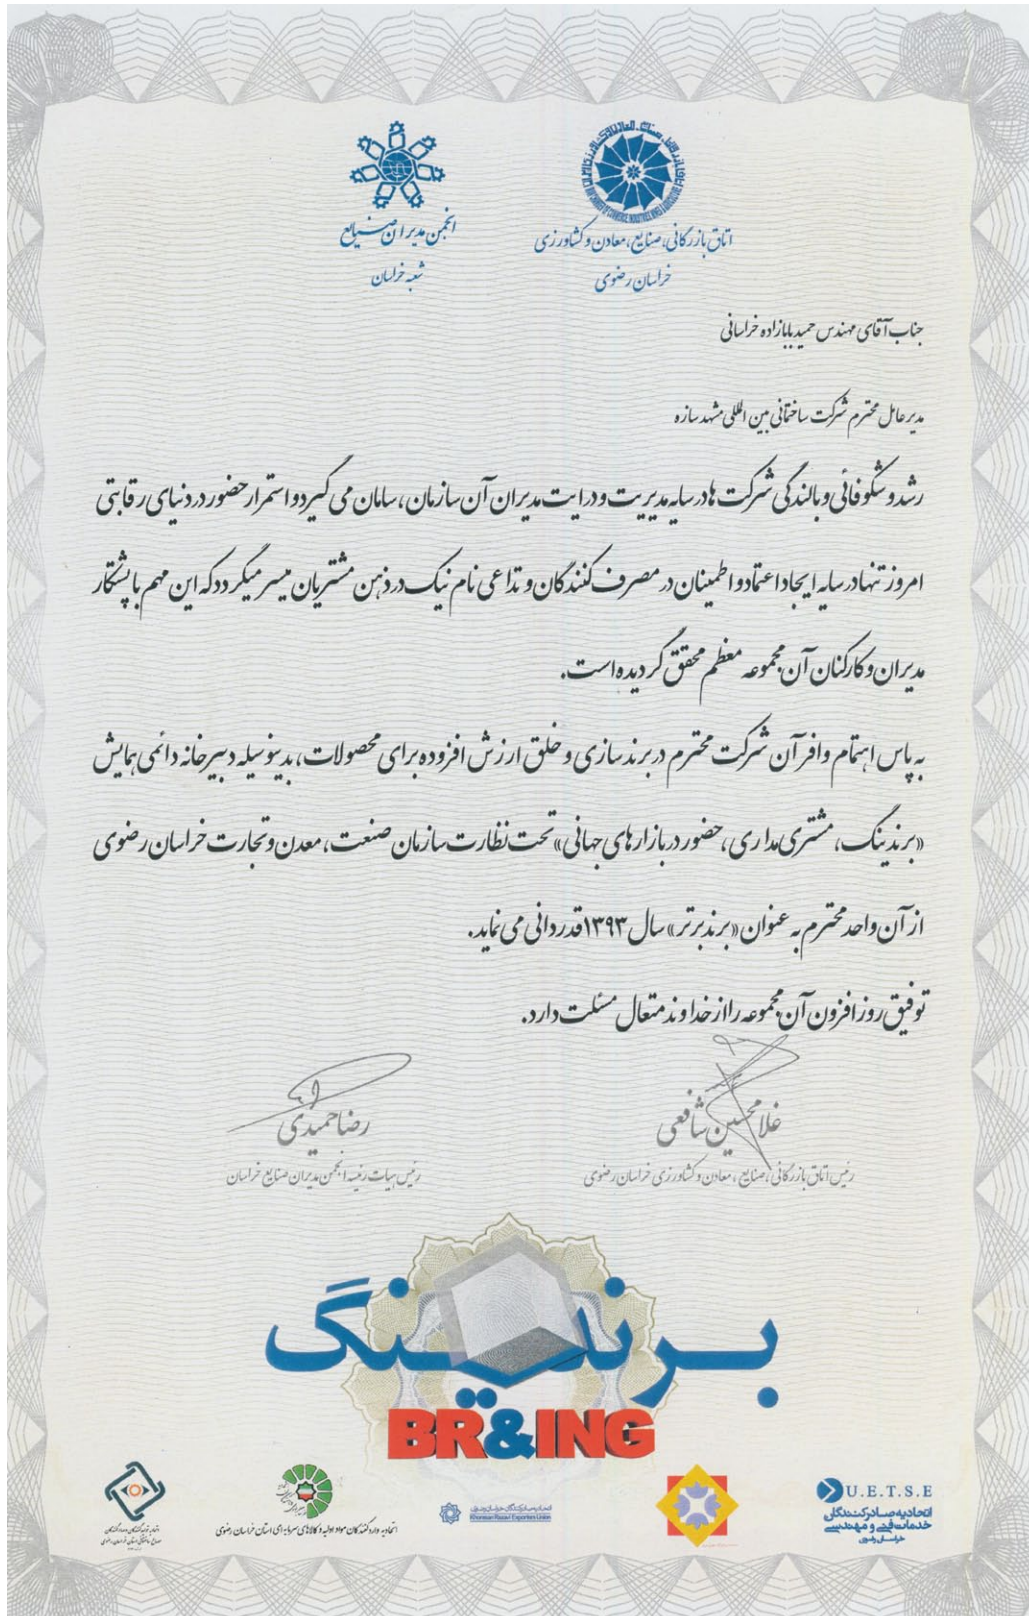 اتاق بازرگانی، صنایع، معادن و کشاورزی
خراسان رضوی
انجمن مدیران صنایع
شعبه خراسان
جناب آقای مهندس حمید بابازاده خراسانی
مدیرعامل محترم شرکت ساختمانی بین المللی مشهد سازه
رشد و شکوفائی و بالندگی شرکت ها در سایه مدیریت و درایت مدیران آن سازمان، سامان می گیرد و استمرار حضور در دنیای رقابتی
امروز تنها در سایه ایجاد اعتماد و اطمینان در مصرف کنندگان و تداعی نام نیک در ذهن مشتریان میسر میگردد که این مهم با پشتکار
مدیران و کارکنان آن مجموعه معظم محقق گردیده است.
به پاس اهتمام وافر آن شرکت محترم در برندسازی و خلق ارزش افزوده برای محصولات، بدینوسیله دبیرخانه دائمی همایش
«برندینگ، مشتری مداری، حضور در بازارهای جهانی» تحت نظارت سازمان صنعت، معدن و تجارت خراسان رضوی
از آن واحد محترم به عنوان «برند برتر» سال ۱۳۹۳ قدردانی می نماید.
توفیق روزافزون آن مجموعه را از خداوند متعال مسئلت دارد.
غلامحسین شافعی
رئیس اتاق بازرگانی، صنایع، معادن و کشاورزی خراسان رضوی
رضا حمیدی
رئیس هیات رئیسه انجمن مدیران صنایع خراسان
برندینگ
BR&ING
U.E.T.S.E
اتحادیه صادرکنندگان
خدمات فنی و مهندسی
خراسان رضوی
اتحادیه صادرکنندگان خراسان رضوی
Khorasan Razavi Exporters Union
اتحادیه وارد کنندگان مواد اولیه و کالاهای سرمایه ای استان خراسان رضوی